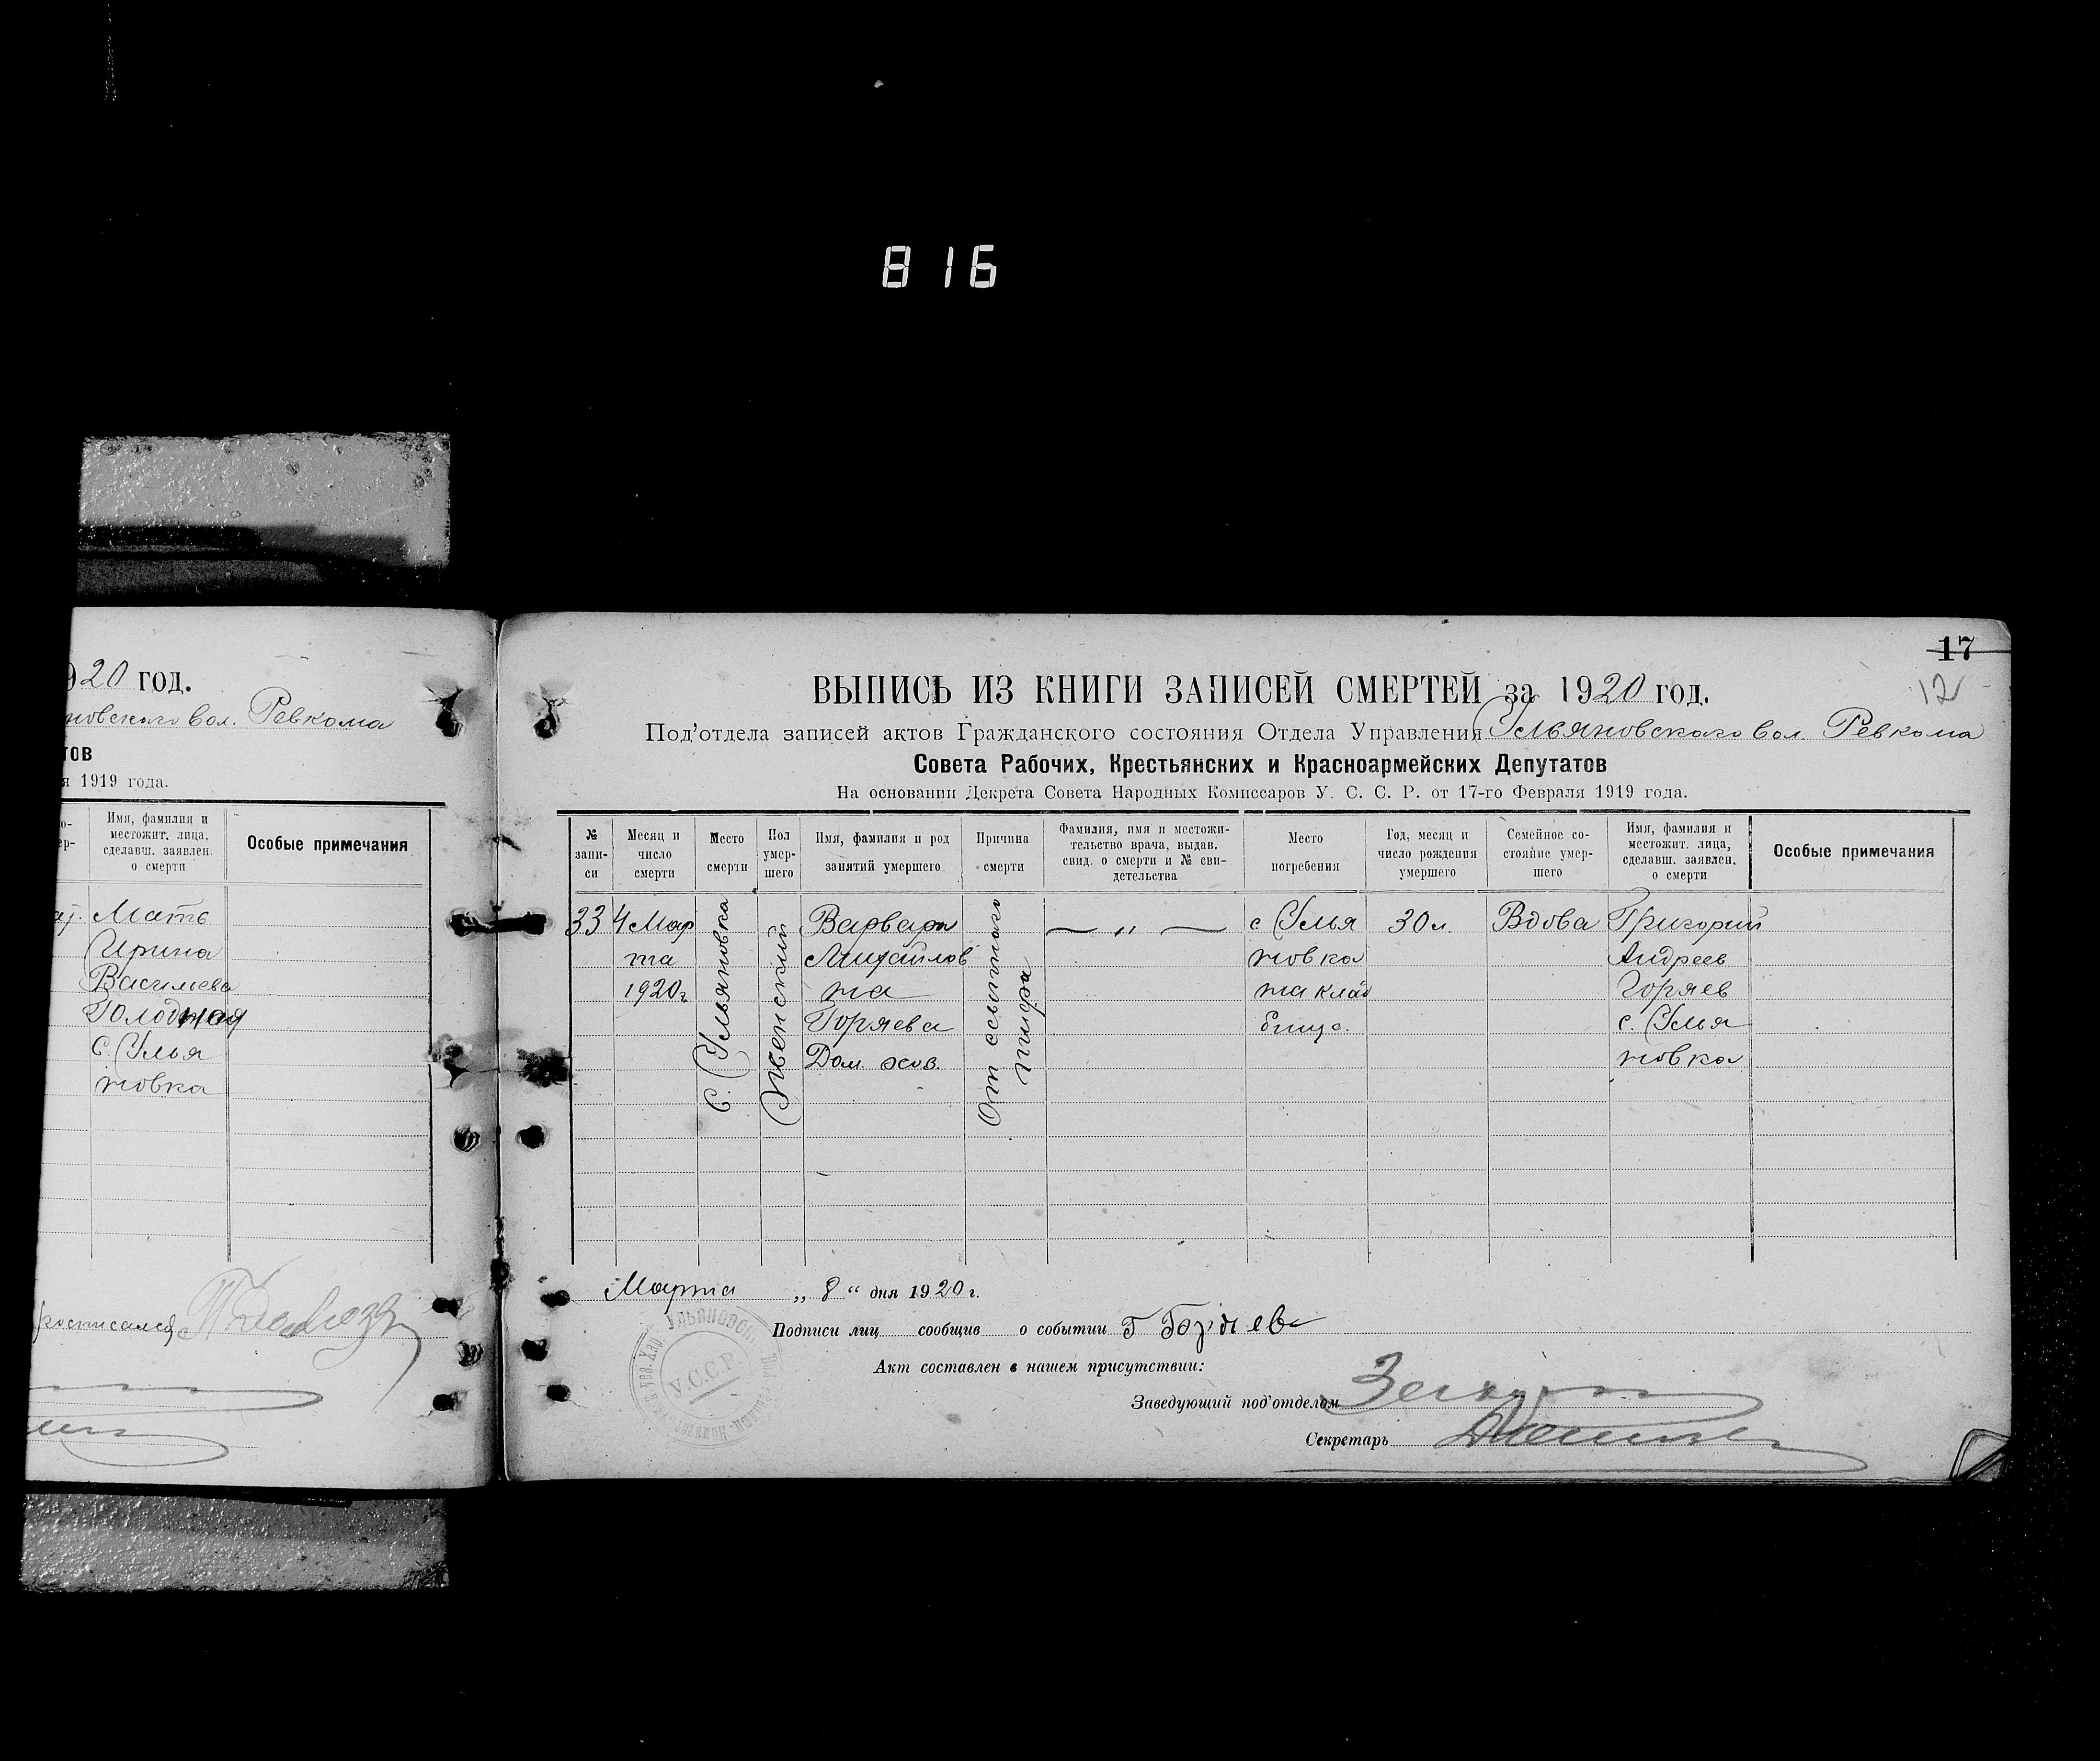 816
920 год.
новского вол. Ревкома
тов
я 1919 года.
Имя, фамилия и
местожит. лица,
сделавш. заявлен.
о смерти
Особые примечания
Мать
Ирина
Василиева
Голодная
с. Улья
новка
росписался
17
12
ВЫПИСЬ ИЗ КНИГИ ЗАПИСЕЙ СМЕРТЕЙ за 1920 год.
Под'отдела записей актов Гражданского состояния Отдела Управления Ульяновского вол. Ревкома
Совета Рабочих, Крестьянских и Красноармейских Депутатов
На основании Декрета Совета Народных Комиссаров У. С. С. Р. от 17-го Февраля 1919 года.
№
запи-
си
Месяц и
число
смерти
Место
смерти
Пол
умер-
шего
Имя, фамилия и род
занятий умершего
Причина
смерти
Фамилия, имя и местожи-
тельство врача, выдав.
свид. о смерти и № сви-
детельства
Место
погребения
Год, месяц и
число рождения
умершего
Семейное со-
стояние умер-
шего
Имя, фамилия и
местожит. лица,
сделавш. заявлен.
о смерти
Особые примечания
33
4 Мар
та
1920 г
С. Ульяновка
Женский
Варвара
Михайлов
на
Горяева
Дом. хоз.
От сыпного
тифа
— „ —
с Улья
новка
на клад
бище.
30 л.
Вдова
Григорий
Андреев
Горяев
с. Улья
новка
Марта „ 8 “ дня 1920 г.
Подписи лиц сообщив о событии Г Горяев
Акт составлен в нашем присутствии:
Заведующий под'отделом
Секретарь
УЛЬЯНОВСК
У.С.С.Р.